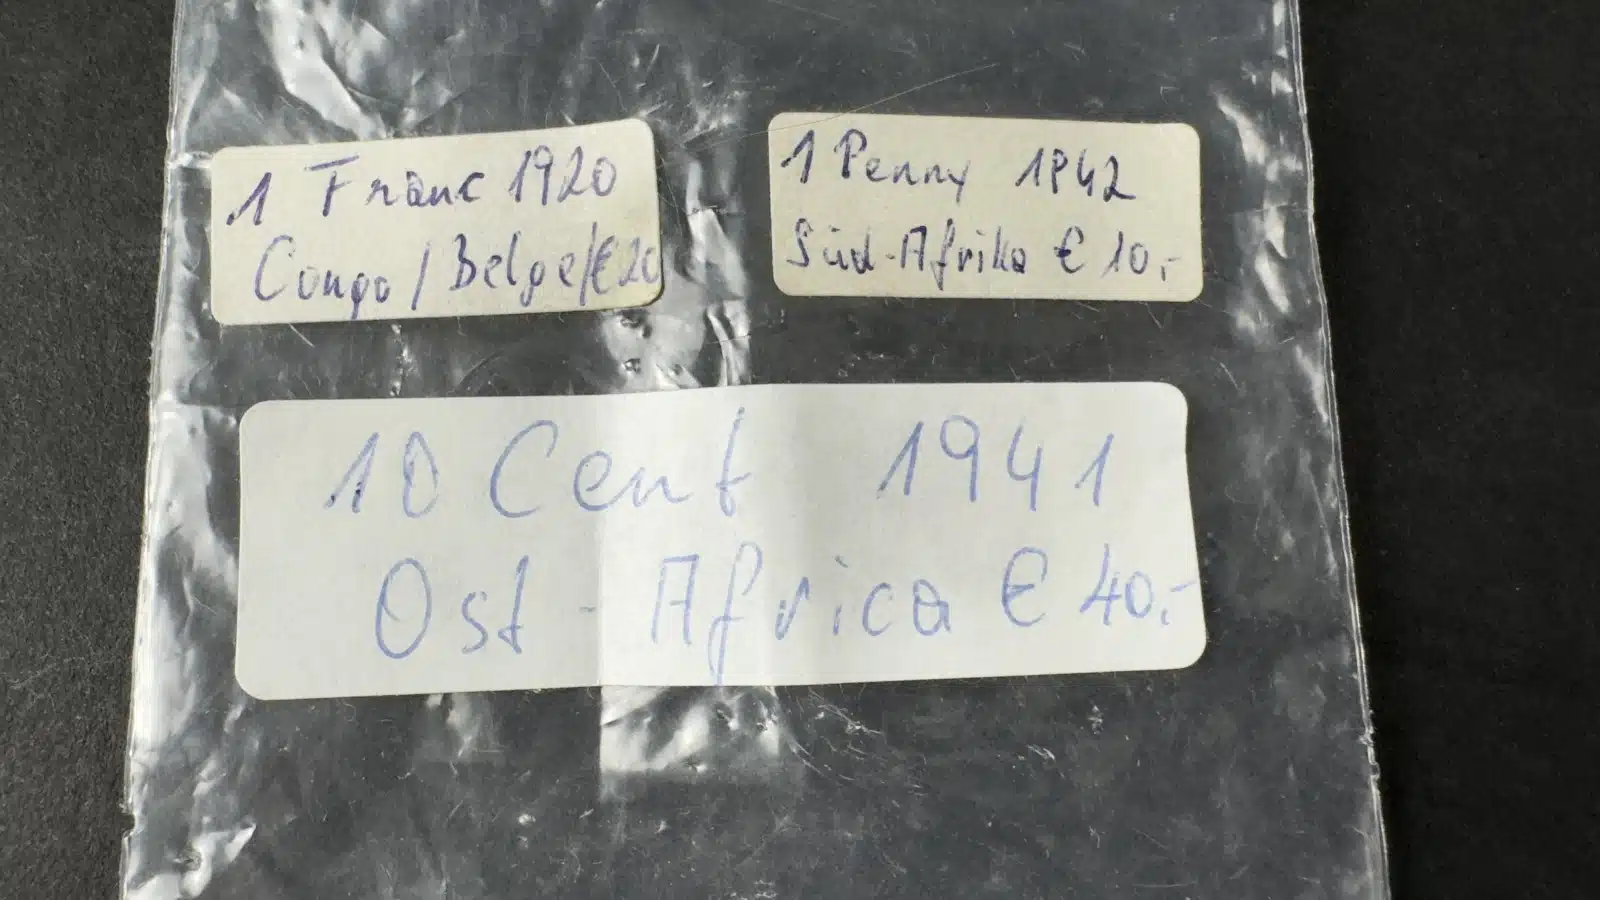 1 Franc 1920
Congo / Belge / € 20
1 Penny 1942
Süd-Afrika € 10,-
10 Cent 1941
Ost-Africa € 40,-